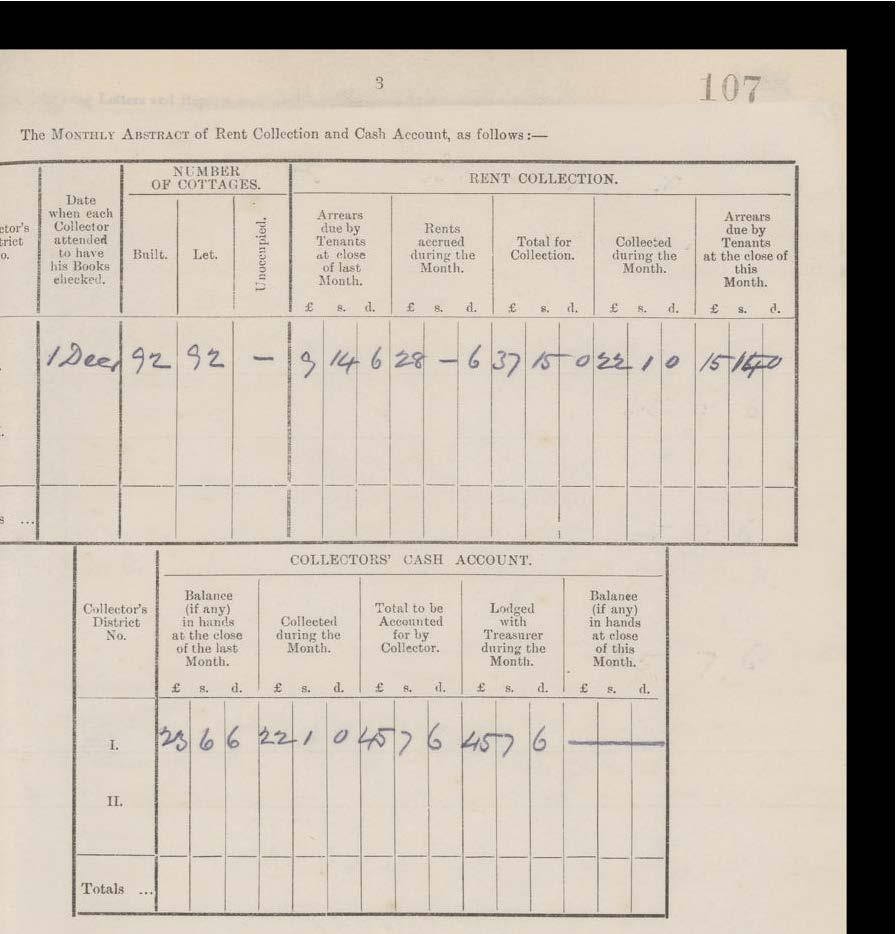 3
107
The MONTHLY ABSTRACT of Rent Collection and Cash Account, as follows :—
NUMBER
OF COTTAGES.
RENT COLLECTION.
ctor's
trict
o.
Date
when each
Collector
attended
to have
his Books
checked.
Built.
Let.
Unoccupied.
Arrears
due by
Tenants
at close
of last
Month.
Rents
accrued
during the
Month.
Total for
Collection.
Collected
during the
Month.
Arrears
due by
Tenants
at the close of
this
Month.
£ s. d. £ s. d. £ s. d. £ s. d. £ s. d.
1 Decr 92 92 — 9 14 6 28 — 6 37 15 0 22 1 0 15 14 0
s ...
COLLECTORS' CASH ACCOUNT.
Collector's
District
No.
Balance
(if any)
in hands
at the close
of the last
Month.
Collected
during the
Month.
Total to be
Accounted
for by
Collector.
Lodged
with
Treasurer
during the
Month.
Balance
(if any)
in hands
at close
of this
Month.
£ s. d. £ s. d. £ s. d. £ s. d. £ s. d.
I. 23 6 6 22 1 0 45 7 6 45 7 6 —
II.
Totals ...